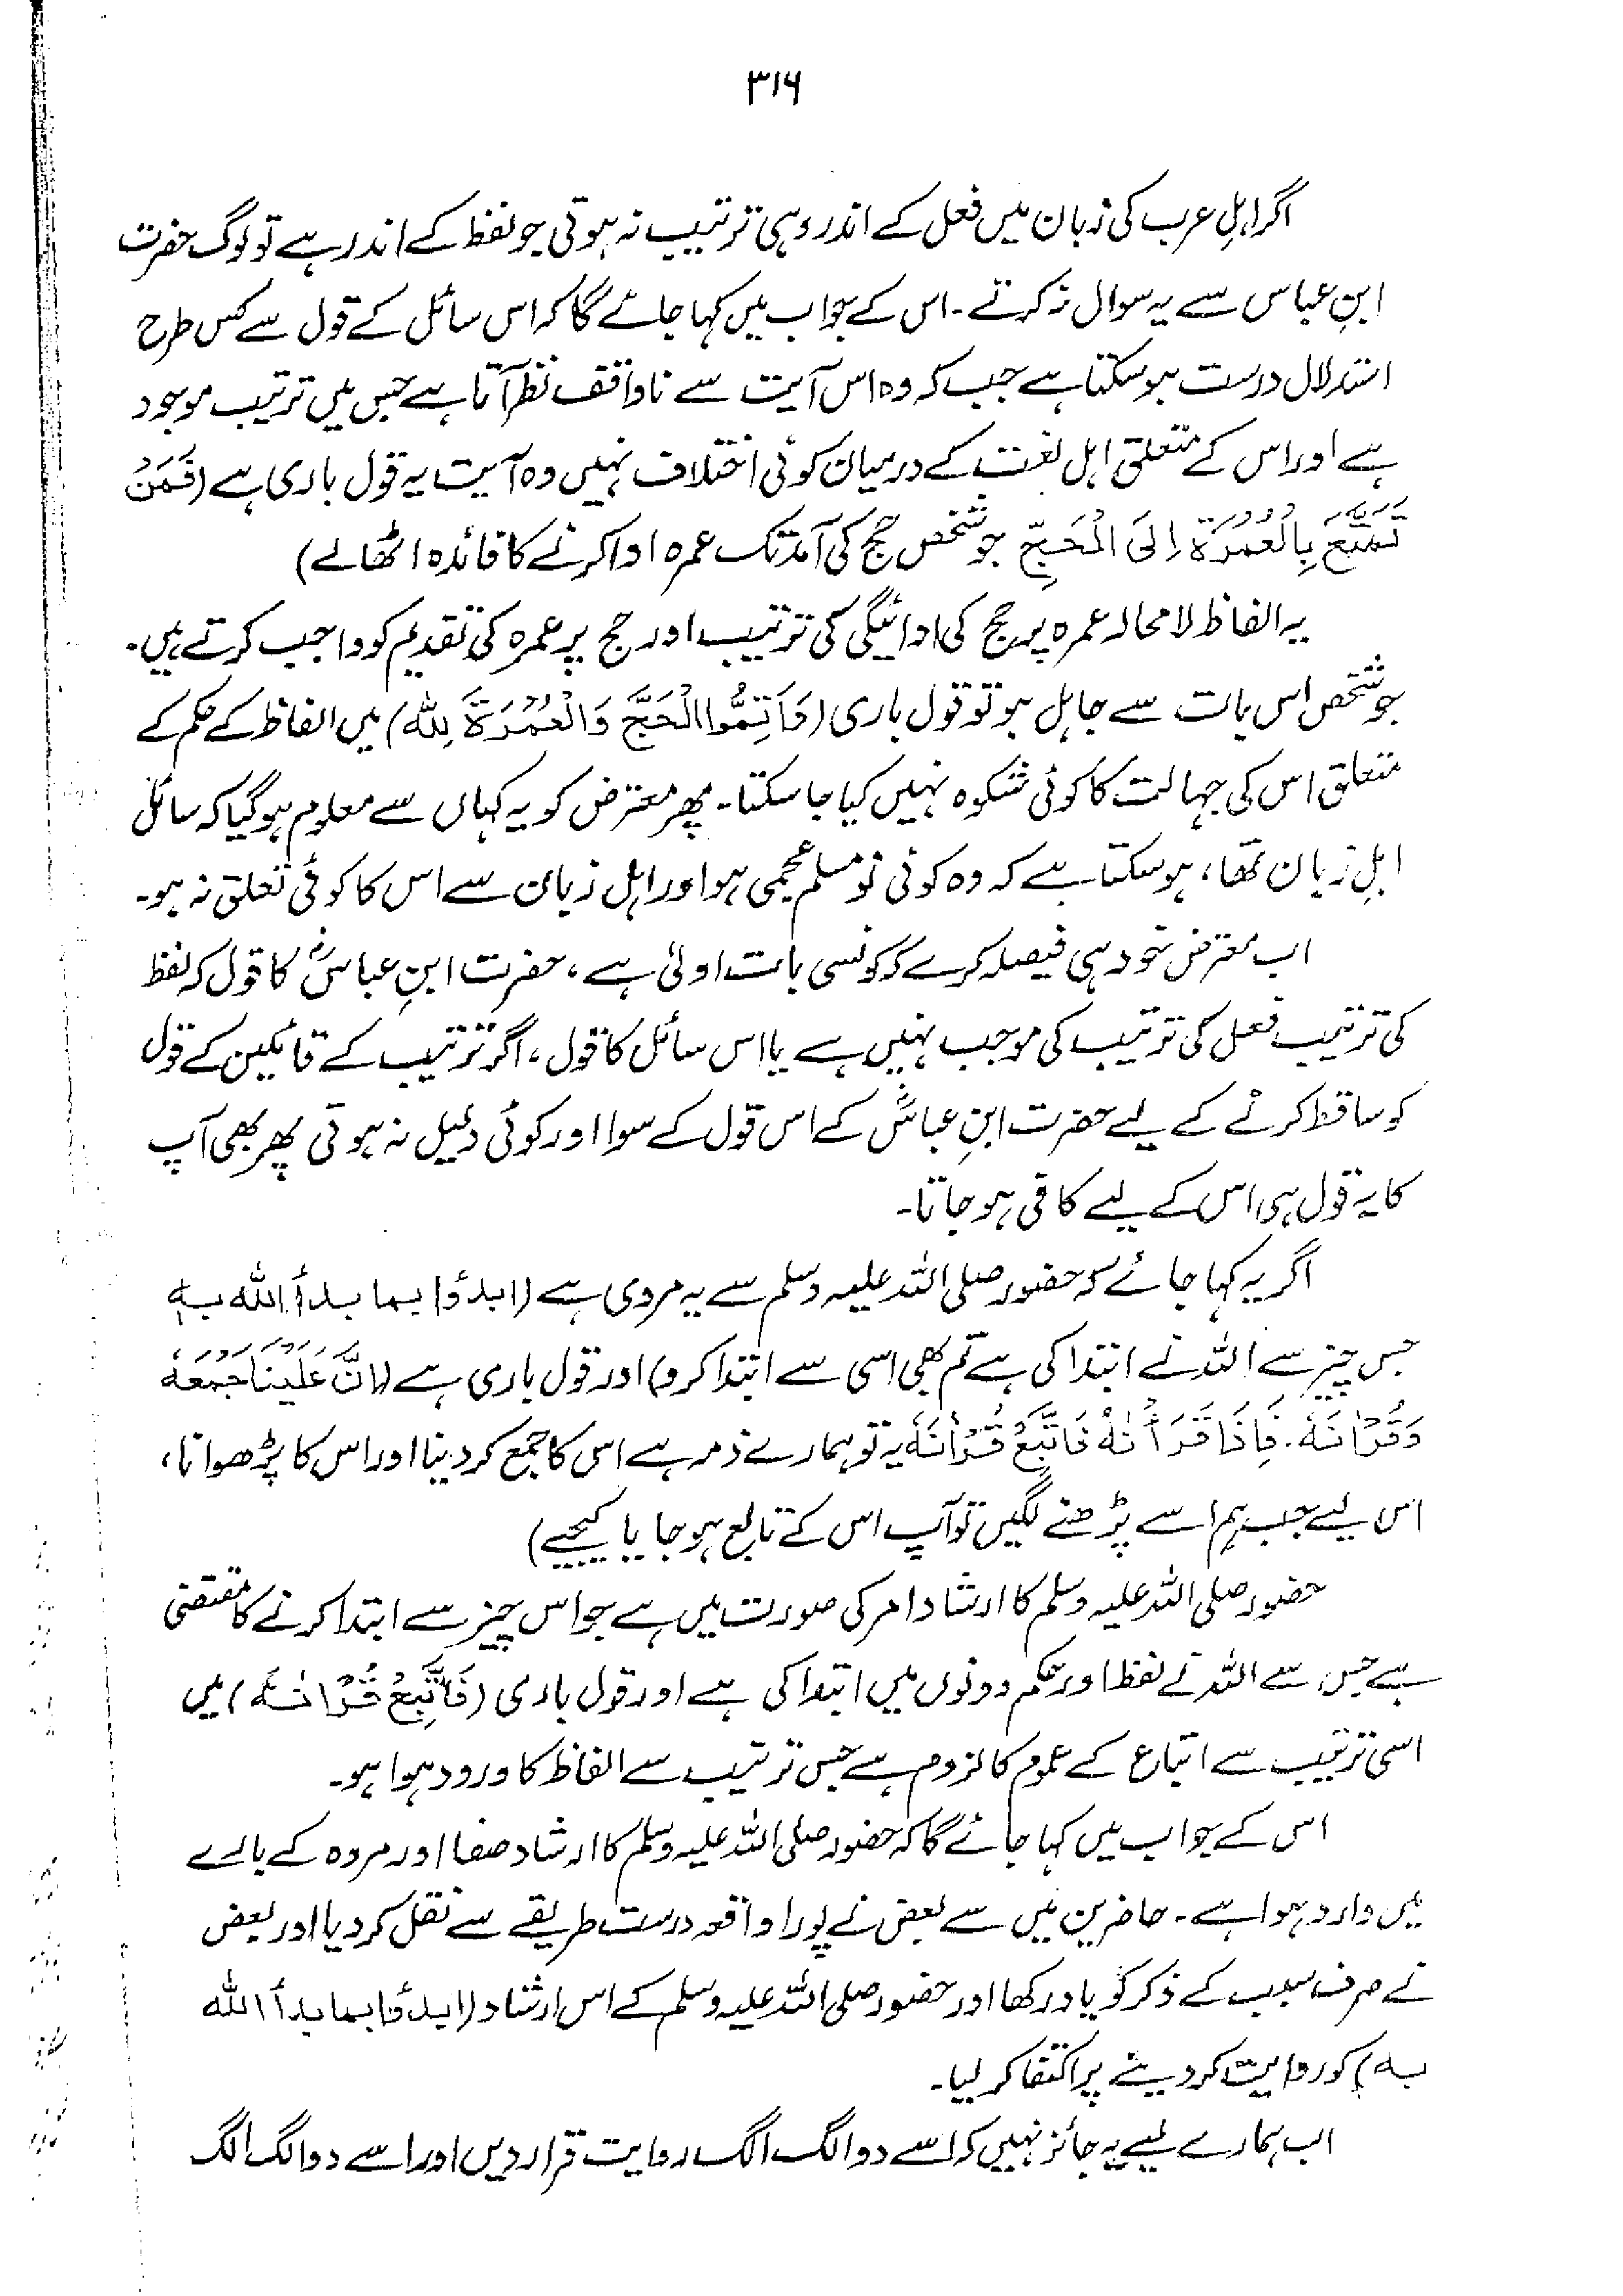 ۳۱۶
اگر اہلِ عرب کی زبان میں فعل کے اندر وہی ترتیب نہ ہوتی جو لفظ کے اندر ہے تو لوگ حضرت
ابنِ عباس سے یہ سوال نہ کرتے۔ اس کے جواب میں کہا جائے گا کہ اس سائل کے قول سے کس طرح
استدلال درست ہو سکتا ہے جب کہ وہ اس آیت سے ناواقف نظر آتا ہے جس میں ترتیب موجود
ہے اور اس کے متعلق اہلِ لغت کے درمیان کوئی اختلاف نہیں وہ آیت یہ قول باری ہے (فَمَنْ
تَمَتَّعَ بِالْعُمْرَةِ اِلَى الْحَجِّ جو شخص حج کی آمد تک عمرہ ادا کرنے کا فائدہ اٹھالے)
یہ الفاظ لامحالہ عمرہ پر حج کی ادائیگی کی ترتیب اور حج پر عمرہ کی تقدیم کو واجب کرتے ہیں۔
جو شخص اس بات سے جاہل ہو تو قول باری (وَاَتِمُّوا الْحَجَّ وَالْعُمْرَةَ لِلّٰهِ) میں الفاظ کے حکم کے
متعلق اس کی جہالت کا کوئی شکوہ نہیں کیا جا سکتا۔ پھر معترض کو یہ کہاں سے معلوم ہو گیا کہ سائل
اہلِ زبان تھا، ہو سکتا ہے کہ وہ کوئی نو مسلم عجمی ہو اور اہلِ زبان سے اس کا کوئی تعلق نہ ہو۔
اب معترض خود ہی فیصلہ کرے کہ کونسی بات اولیٰ ہے، حضرت ابنِ عباسؓ کا قول کہ لفظ
کی ترتیب فعل کی ترتیب کی موجب نہیں ہے یا اس سائل کا قول، اگر ترتیب کے قائلین کے قول
کو ساقط کرنے کے لیے حضرت ابنِ عباسؓ کے اس قول کے سوا اور کوئی دلیل نہ ہوتی پھر بھی آپ
کا یہ قول ہی اس کے لیے کافی ہو جاتا۔
اگر یہ کہا جائے کہ حضور صلی اللہ علیہ وسلم سے یہ مروی ہے (ابدؤا بما بدأ اللہ بہ
جس چیز سے اللہ نے ابتدا کی ہے تم بھی اسی سے ابتدا کرو) اور قول باری ہے (اِنَّ عَلَيْنَا جَمْعَهٗ
وَقُرْاٰنَهٗ۔ فَاِذَا قَرَأْنٰهُ فَاتَّبِعْ قُرْاٰنَهٗ یہ تو ہمارے ذمہ ہے اس کا جمع کر دینا اور اس کا پڑھوانا،
اس لیے جب ہم اسے پڑھنے لگیں تو آپ اس کے تابع ہو جایا کیجیے)
حضور صلی اللہ علیہ وسلم کا ارشاد امر کی صورت میں ہے جو اس چیز سے ابتدا کرنے کا مقتضی
ہے جس سے اللہ نے لفظ اور حکم دونوں میں ابتدا کی ہے اور قول باری (فَاتَّبِعْ قُرْاٰنَهٗ) میں
اسی ترتیب سے اتباع کے عموم کا لزوم ہے جس ترتیب سے الفاظ کا ورود ہوا ہو۔
اس کے جواب میں کہا جائے گا کہ حضور صلی اللہ علیہ وسلم کا ارشاد صفا اور مروہ کے بارے
میں وارد ہوا ہے۔ حاضرین میں سے بعض نے پورا واقعہ درست طریقے سے نقل کر دیا اور بعض
نے صرف سبب کے ذکر کو یاد رکھا اور حضور صلی اللہ علیہ وسلم کے اس ارشاد (ابدؤا بما بدأ اللہ
بہ) کو روایت کر دینے پر اکتفا کر لیا۔
اب ہمارے لیے یہ جائز نہیں کہ اسے دو الگ الگ روایت قرار دیں اور اسے دو الگ الگ